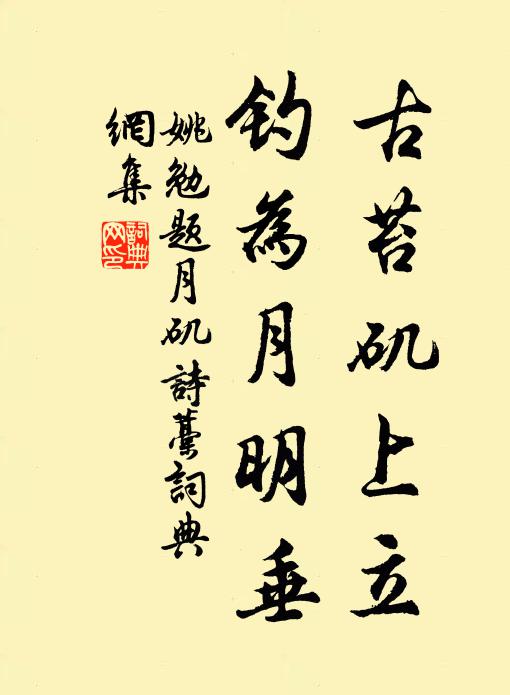 古苔矶上立
钓為月明垂
姚勉题月矶詩藁詞典
網集
詞典网印